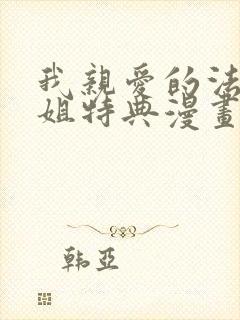 我親愛的法
姐特典漫畫
韩亚